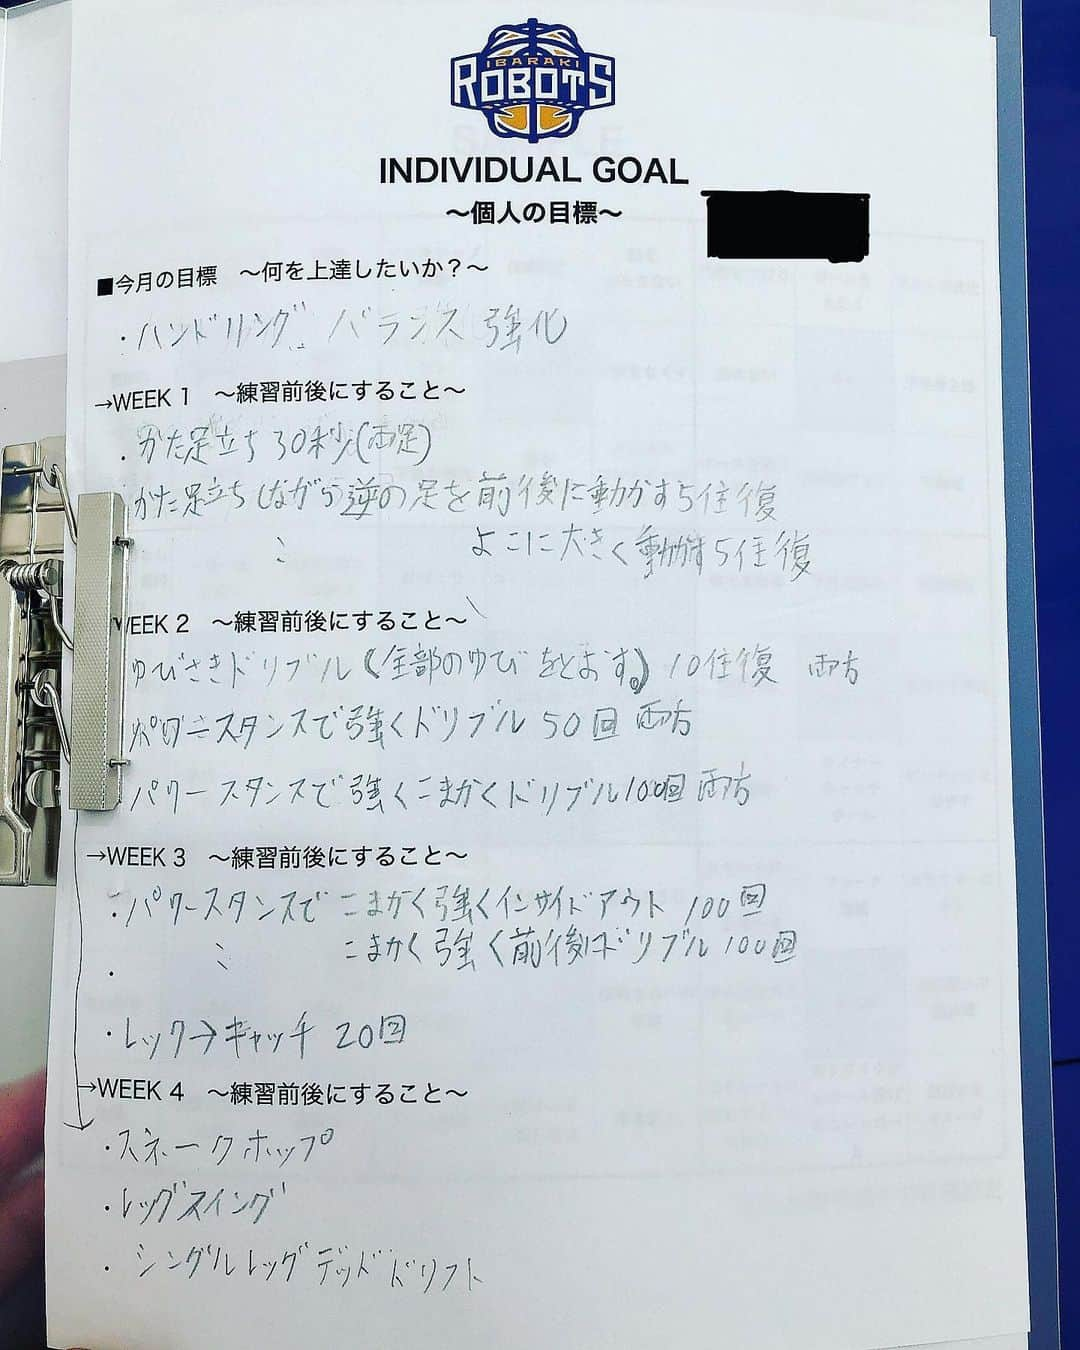 IBARAKI
ROBOTS
INDIVIDUAL GOAL
〜個人の目標〜
■今月の目標 〜何を上達したいか?〜
・ハンドリング バランス 強化
→WEEK 1 〜練習前後にすること〜
・かた足立ち 30秒(両足)
かた足立ちしながら逆の足を前後に動かす5往復
〃 よこに大きく動かす5往復
WEEK 2 〜練習前後にすること〜
ゆびさきドリブル(全部のゆびをとおす。) 10往復 両方
スタンスで強くドリブル 50回 両方
パワースタンスで強くこまかくドリブル100回 両方
→WEEK 3 〜練習前後にすること〜
・パワースタンスで こまかく強くインサイドアウト 100回
〃 こまかく強く前後ドリブル100回
・
・レック→キャッチ 20回
→WEEK 4 〜練習前後にすること〜
・スネークホップ
・レッグスイング
・シングルレッグデッドドリフト